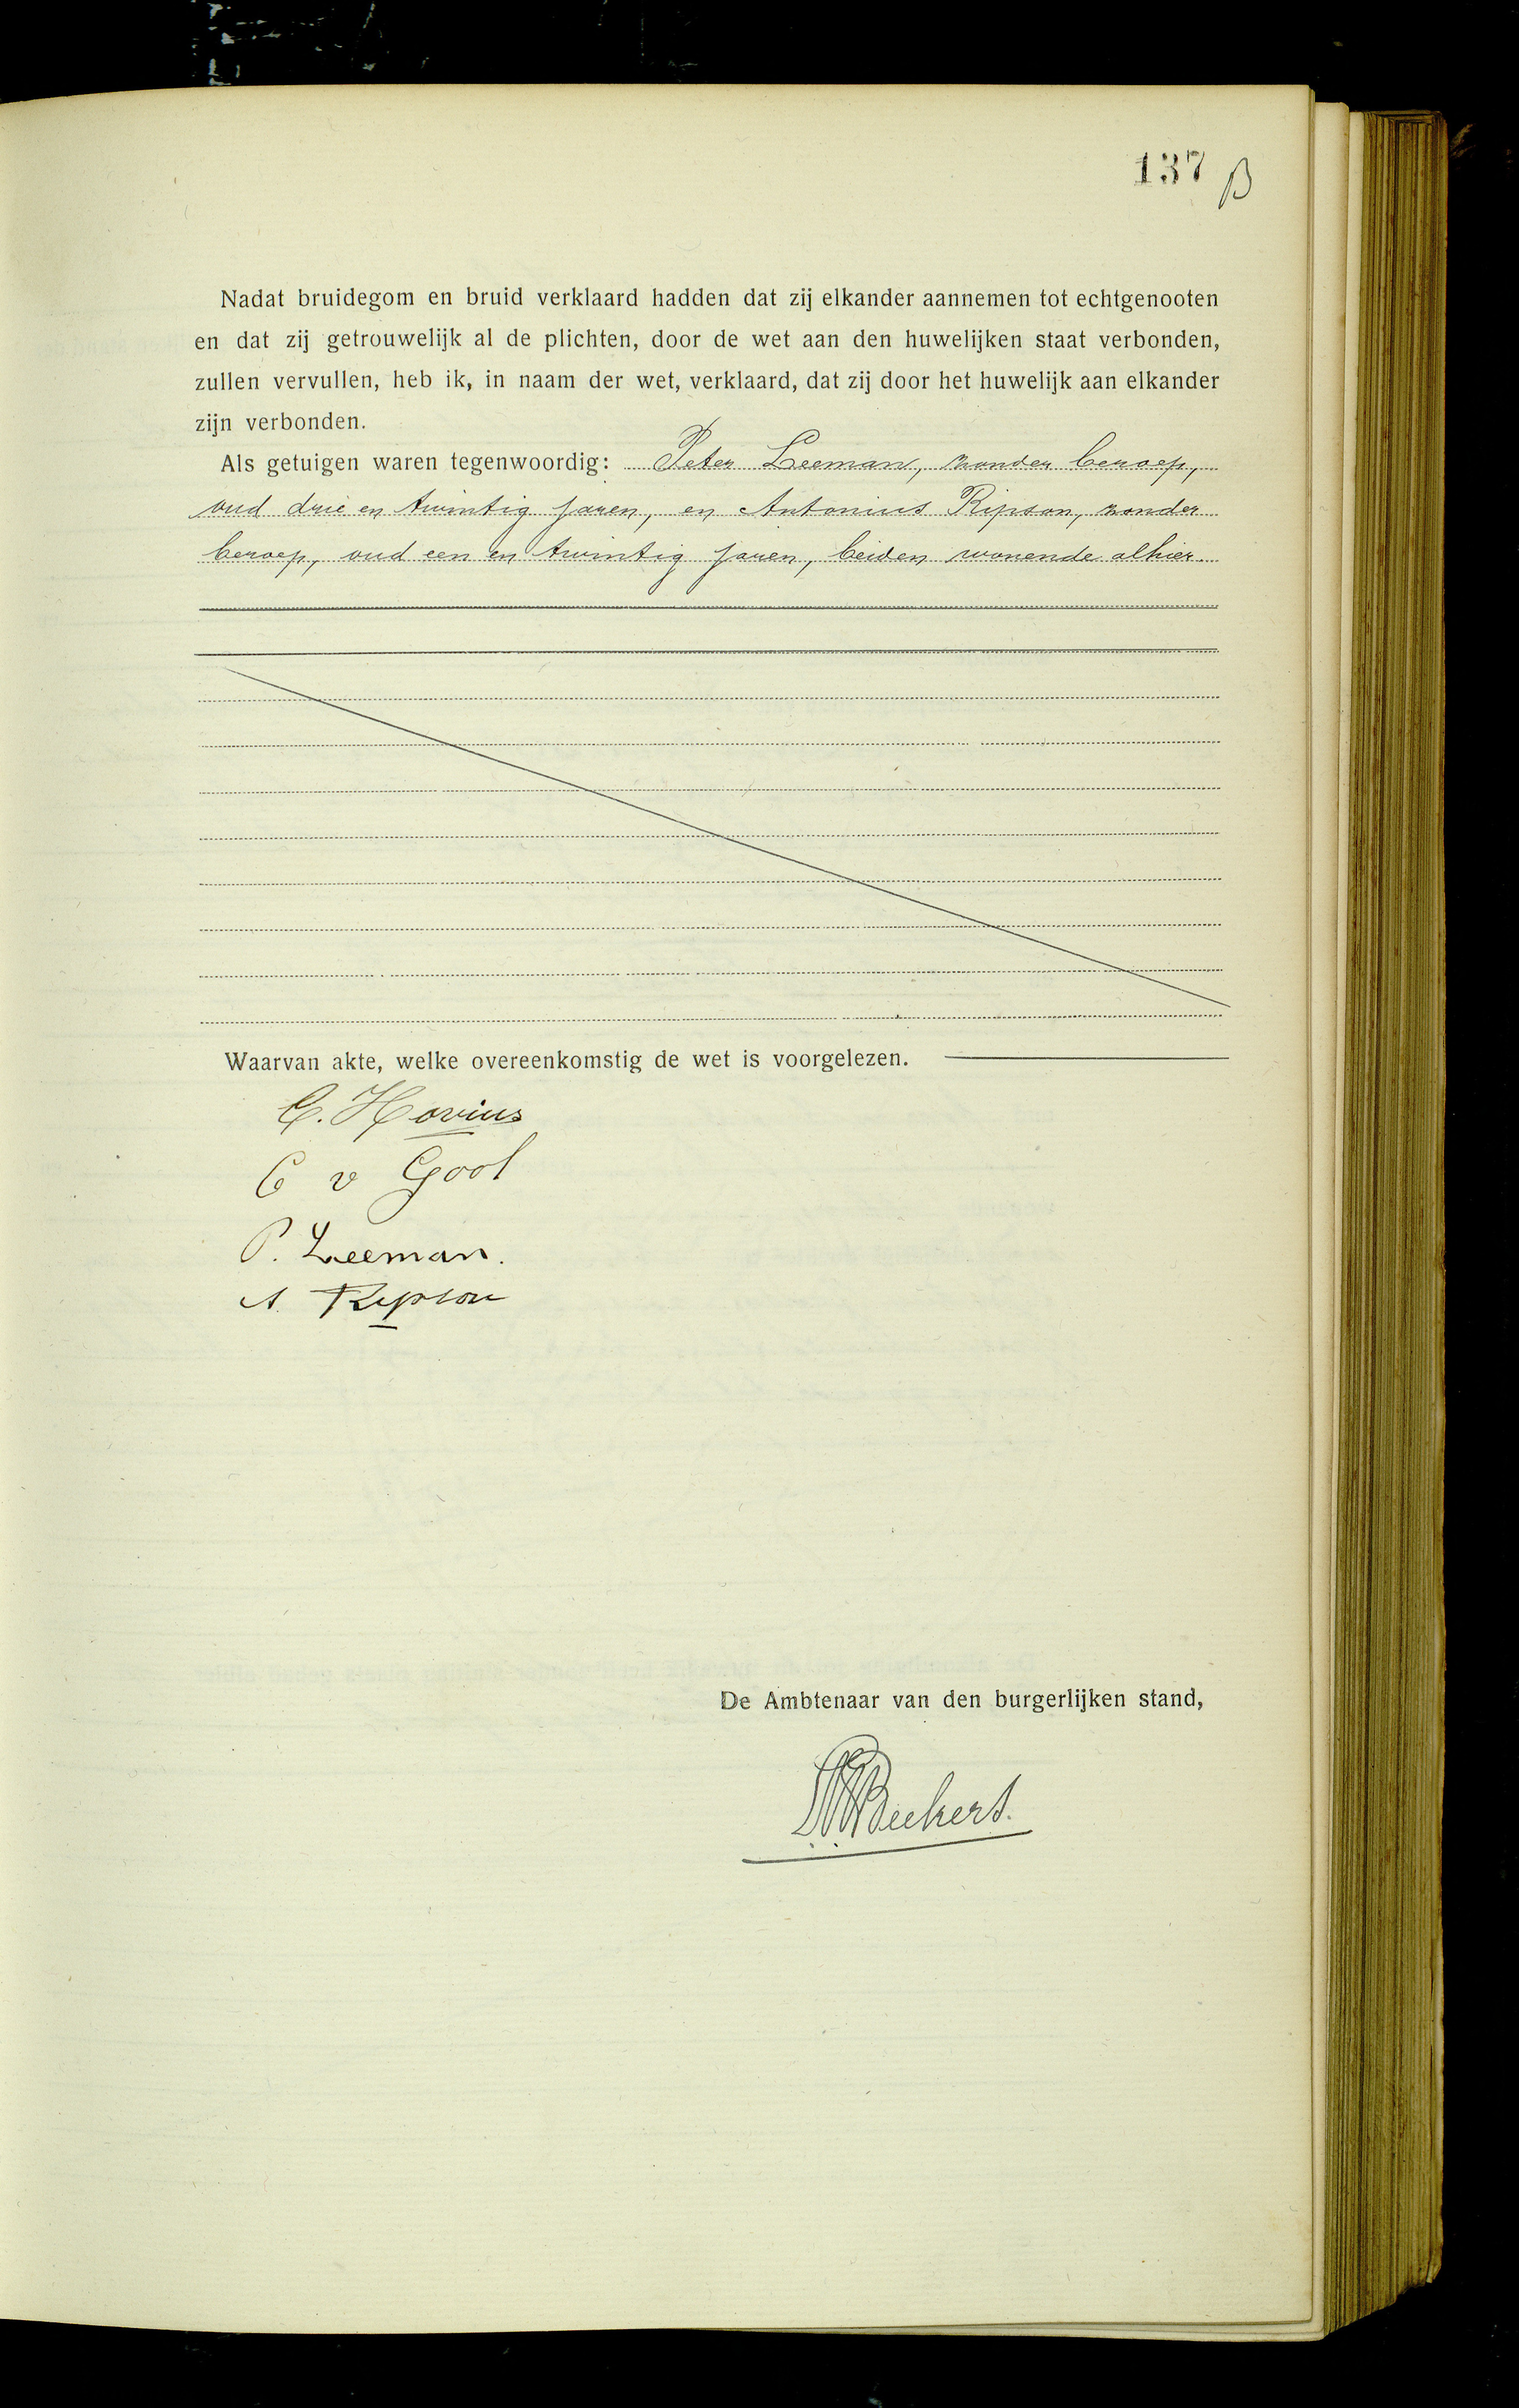 137 B
Nadat bruidegom en bruid verklaard hadden dat zij elkander aannemen tot echtgenooten
en dat zij getrouwelijk al de plichten, door de wet aan den huwelijken staat verbonden,
zullen vervullen, heb ik, in naam der wet, verklaard, dat zij door het huwelijk aan elkander
zijn verbonden.
Als getuigen waren tegenwoordig: Peter Leeman, zonder beroep,
oud drie en twintig jaren, en Antonius Ripson, zonder
beroep, oud een en twintig jaren, beiden wonende alhier.
Waarvan akte, welke overeenkomstig de wet is voorgelezen.
C. Hovius
C v Gool
P. Leeman.
A. Ripson
De Ambtenaar van den burgerlijken stand,